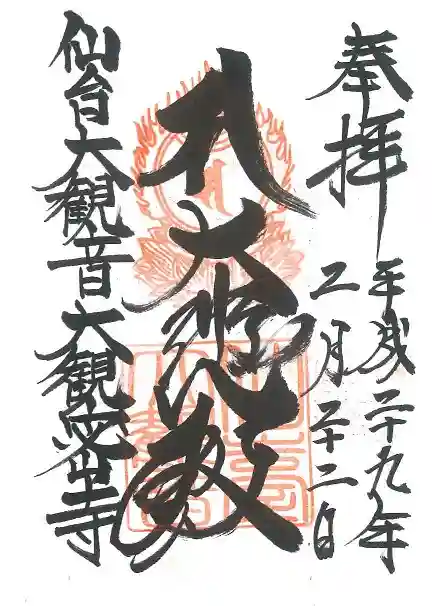 奉拝
平成二十九年
二月二十二日
大悲殿
仙台大観音大観密寺